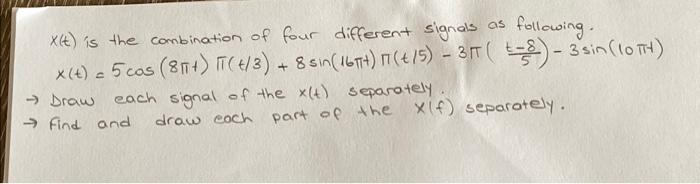 x(t) is the combination of four different signals as following.
x(t) = 5 cos (8πt) Π(t/3) + 8 sin(16πt) Π(t/5) - 3Π( (t-8)/5 ) - 3 sin(10πt)
→ Draw each signal of the x(t) separately.
→ Find and draw each part of the X(f) separately.